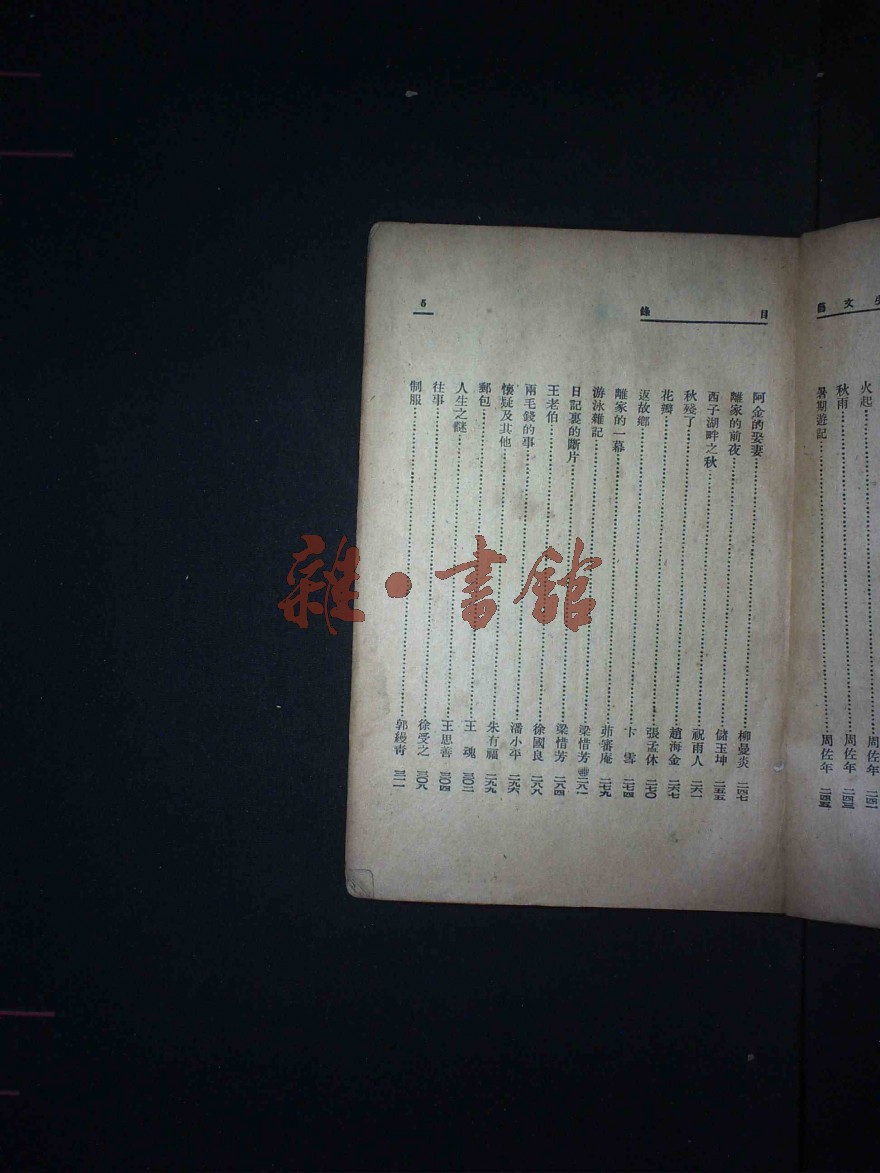 生文藝
火起⋯⋯周佐年 二四一
秋雨⋯⋯周佐年 二四三
暑期遊記⋯⋯周佐年 二四五
目錄
5
阿金的娶妻⋯⋯柳曼炎 二四七
離家的前夜⋯⋯儲玉坤 二五五
西子湖畔之秋⋯⋯祝雨人 二六一
秋殘了⋯⋯趙海金 二六七
花瓣⋯⋯張孟休 二七〇
返故鄉⋯⋯卞雪 二七四
離家的一幕⋯⋯茆蕃庵 二七九
游泳雜記⋯⋯梁惜芳 二八一
日記裏的斷片⋯⋯梁惜芳 二八四
王老伯⋯⋯徐國良 二八八
兩毛錢的事⋯⋯潘小平 二九六
懷疑及其他⋯⋯朱有福 二九九
郵包⋯⋯王魂 三〇二
人生之謎⋯⋯王思善 三〇四
往事⋯⋯徐受之 三〇八
制服⋯⋯郭綬青 三一一
雜·書館